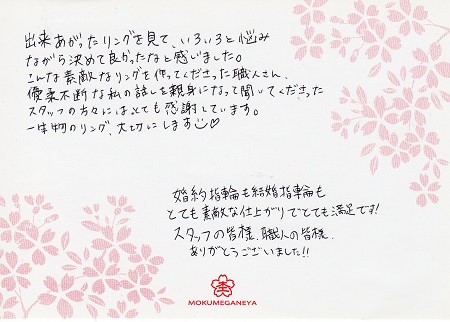 出来あがったリングを見て、いろいろと悩み
ながら決めて良かったなと感じました。
こんな素敵なリングを作ってくださった職人さん、
優柔不断な私の話しを親身になって聞いてくださった
スタッフの方々にはとても感謝しています。
一生物のリング、大切にします
婚約指輪も結婚指輪も
とても素敵な仕上がりでとても満足です!
スタッフの皆様、職人の皆様、
ありがとうございました!!
MOKUMEGANEYA